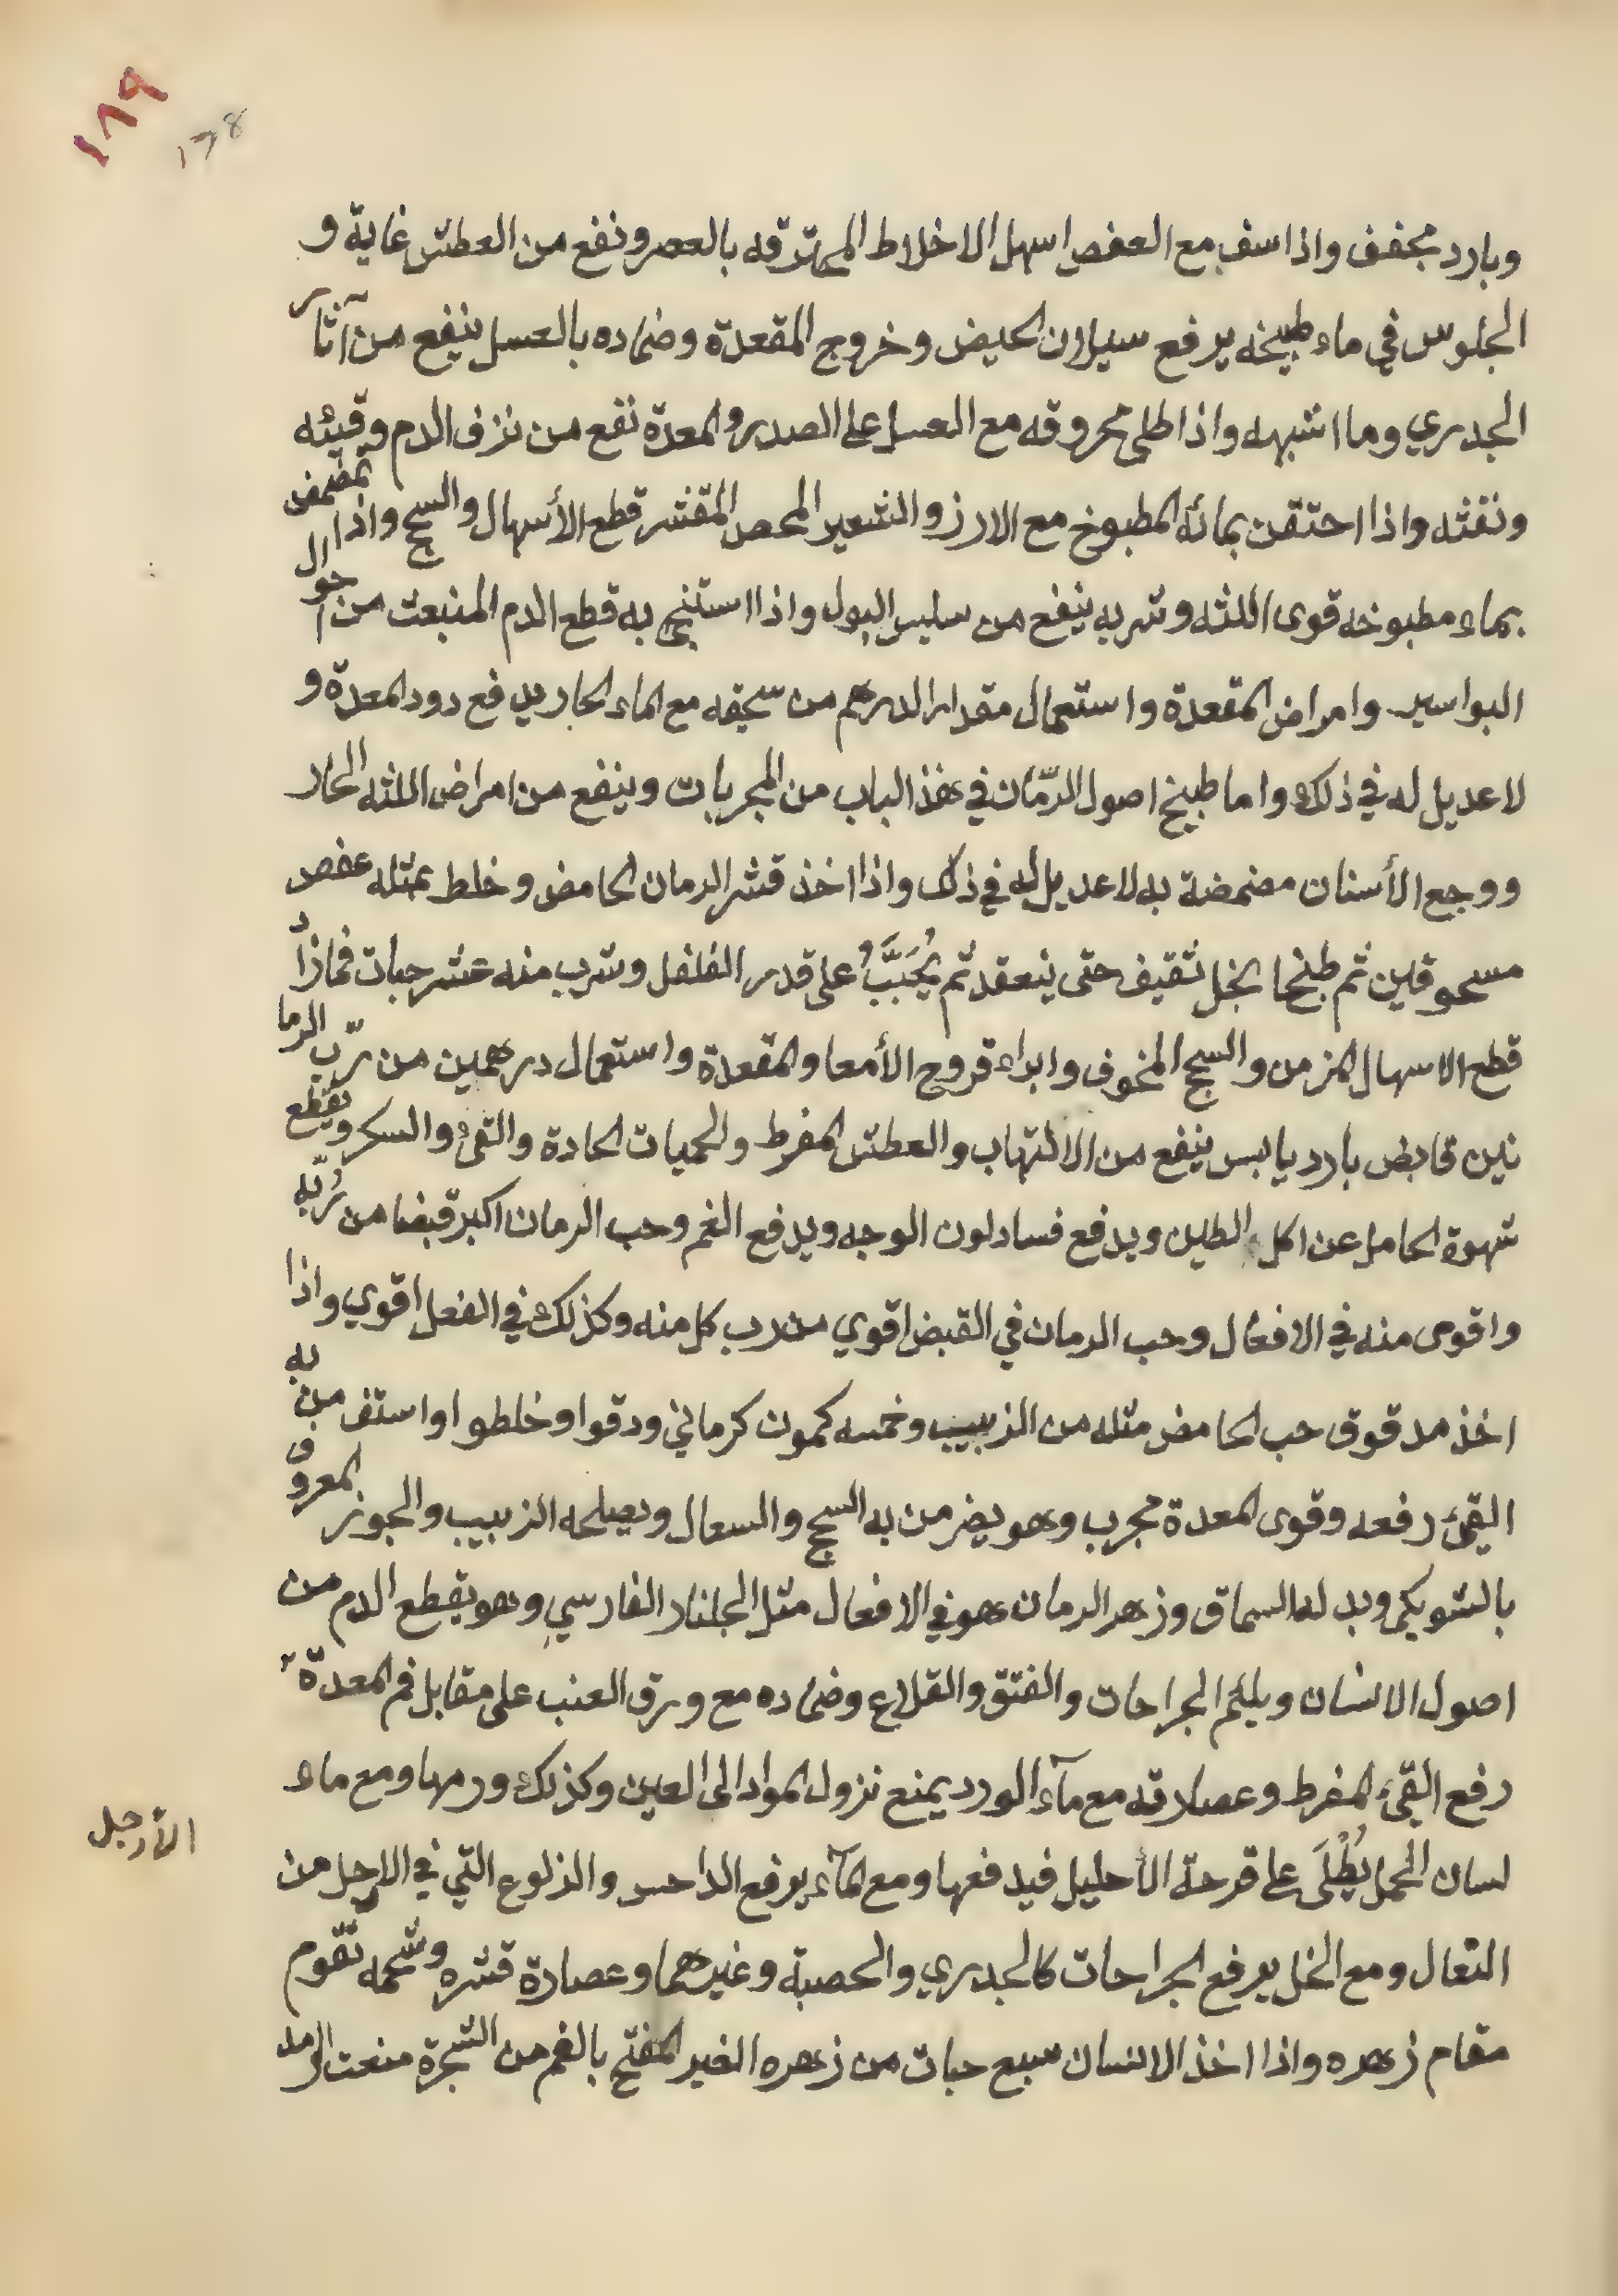 ١٨٩
178
وبارد مجفف واذا سف مع العفص اسهل الاخلاط المحترقه بالعصر ونفع من العطش غاية و
الجلوس في ماء طبيخه يرفع سيلان الحيض وخروج المقعدة وضماده بالعسل ينفع من آثار
الجدري وما اشبهه واذا طلى محروقه مع العسل على الصدر والمعدة نفع من نزف الدم وقيئه
ونفثه واذا احتقن بمائه المطبوخ مع الارز والشعير المحمص المقشر قطع الأسهال والسحج واذا تمضمض
بماء مطبوخه قوى اللثه وشربه ينفع من سلس البول واذا استنجى به قطع الدم المنبعث من احوال
البواسير وامراض المقعدة واستعمال مقدار الدرهم من سحيقه مع الماء الحار يدفع دود المعدة و
لا عديل له في ذلك واما طبيخ اصول الرّمان في هذ الباب من المجربات وينفع من امراض اللثه الحار
ووجع الأسنان مضمضة به لا عديل له في ذلك واذا اخذ قشر الرمان الحامض وخلط بمثله عفص
مسحوقين ثم طبخا بخل ثقيف حتى ينعقد ثم يُحَبَّبُ على قدر الفلفل وشرب منه عشر حبات فمازاد
قطع الاسهال المزمن والسحج المخوف وابراء قروح الأمعا والمقعدة واستعمال درهمين من ربّ الرما
نين قابض بارد يابس ينفع من الالتهاب والعطش المفرط والحميات الحادة والقئ والسكر ويقطع
شهوة الحامل عن اكل الطين ويدفع فساد لون الوجه ويدفع الغم وحب الرمان اكبر قبضا من رُبّه
واقوى منه في الافعال وحب الرمان في القبض اقوي من رب كل منه وكذلك في الفعل اقوي واذا
اخذ مدقوق حب الحامض مثله من الزبيب وخمسه كمون كرماني ودقوا وخلطوا واستف من به
القئ رفعه وقوى المعدة مجرب وهو يضر من به السحج والسعال ويصلحه الزبيب والجوز المعروف
بالشوبكي وبدله السماق وزهر الرمان هو في الافعال مثل الجلنار الفارسي وهو يقطع الدم من
اصول الانسان ويلحم الجراحات والفتق والقلاع وضماده مع ورق العنب على مقابل فم المعدة
رفع القئ المفرط وعصلاقه مع مآء الورد يمنع نزول المواد الى العين وكذلك ورمها ومع ماء
لسان الحمل يُطْلَى على قرحة الأحليل فيدفعها ومع المآء يرفع الداحس والذلوع التي في الارجل من
الأرجل
النعال ومع الخل يرفع الجراحات كالجدري والحصبة وغيرهما وعصارة قشره وشحمه تقوم
مقام زهره واذا اخذ الانسان سبع حبات من زهره الغير المفتح بالفم من الشجرة منعت الرمد